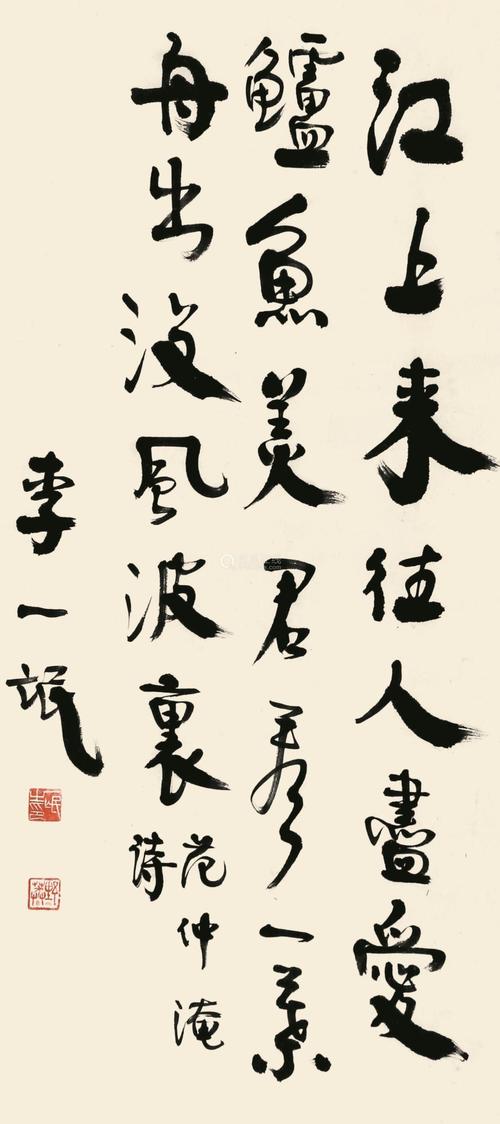 江上来往人盡愛
鱸魚美君看一葉
舟出没風波裏
范仲淹
詩
李一氓